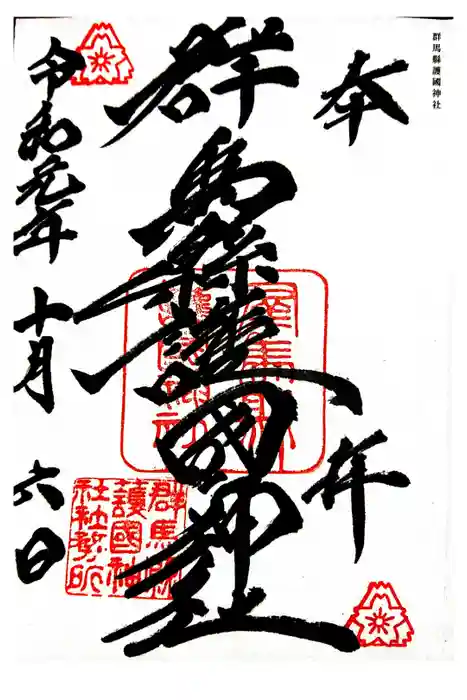 群馬縣護國神社
奉拝
群馬縣護國神社
令和元年十月六日
群馬縣
護國神
社社務所